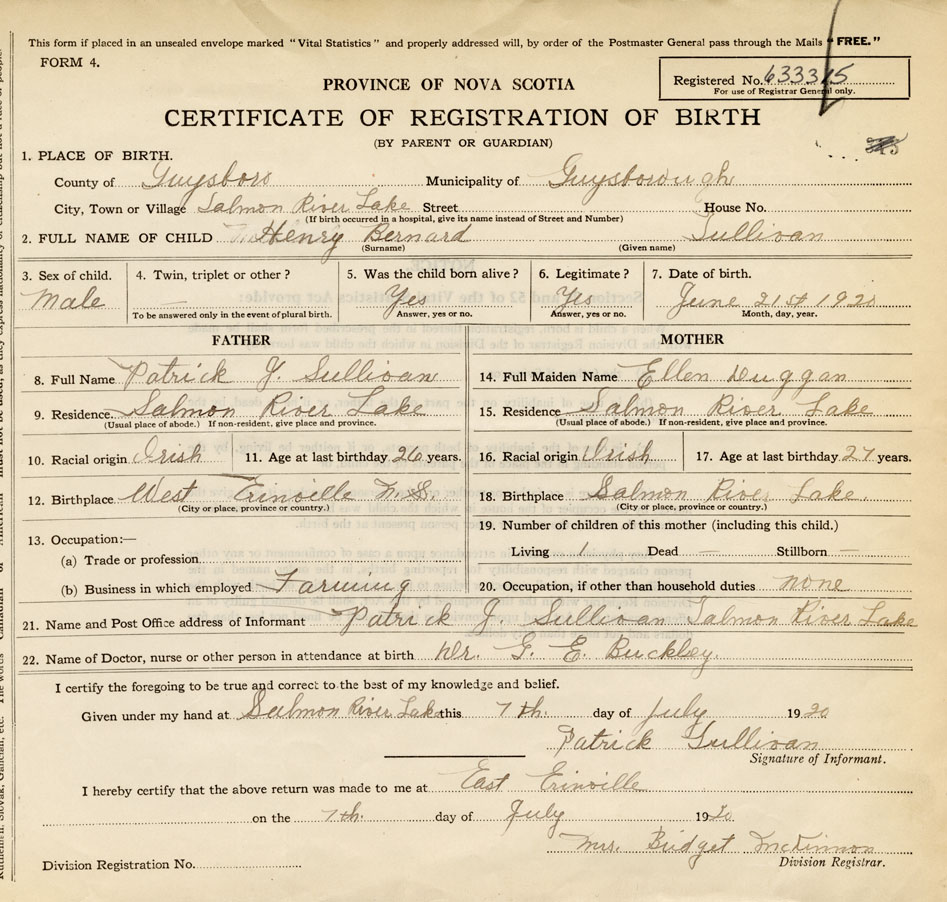 This form if placed in an unsealed envelope marked "Vital Statistics" and properly addressed will, by order of the Postmaster General pass through the Mails "FREE."
FORM 4.
Registered No. 633315
For use of Registrar General only.
PROVINCE OF NOVA SCOTIA
CERTIFICATE OF REGISTRATION OF BIRTH
(BY PARENT OR GUARDIAN)
1. PLACE OF BIRTH.
County of Guysboro Municipality of Guysborough
City, Town or Village Salmon River Lake Street House No.
(If birth occurred in a hospital, give its name instead of Street and Number)
2. FULL NAME OF CHILD Henry Bernard Sullivan
(Surname) (Given name)
3. Sex of child. 4. Twin, triplet or other? 5. Was the child born alive? 6. Legitimate? 7. Date of birth.
Male — Yes Yes June 21st 1920
To be answered only in the event of plural birth. Answer, yes or no. Answer, yes or no. Month, day, year.
FATHER MOTHER
8. Full Name Patrick J. Sullivan 14. Full Maiden Name Ellen Duggan
9. Residence Salmon River Lake 15. Residence Salmon River Lake
(Usual place of abode.) If non-resident, give place and province. (Usual place of abode.) If non-resident, give place and province.
10. Racial origin Irish 11. Age at last birthday 26 years. 16. Racial origin Irish 17. Age at last birthday 27 years.
12. Birthplace West Erinville N.S. 18. Birthplace Salmon River Lake.
(City or place, province or country.) (City or place, province or country.)
13. Occupation:— 19. Number of children of this mother (including this child.)
(a) Trade or profession Living 1 Dead — Stillborn —
(b) Business in which employed Farming 20. Occupation, if other than household duties none
21. Name and Post Office address of Informant Patrick J. Sullivan Salmon River Lake
22. Name of Doctor, nurse or other person in attendance at birth Dr. G. E. Buckley.
I certify the foregoing to be true and correct to the best of my knowledge and belief.
Given under my hand at Salmon River Lake this 7th. day of July 1920
Patrick Sullivan
Signature of Informant.
I hereby certify that the above return was made to me at East Erinville
on the 7th. day of July 1920
Mrs. Bridget McKinnon
Division Registrar.
Division Registration No.